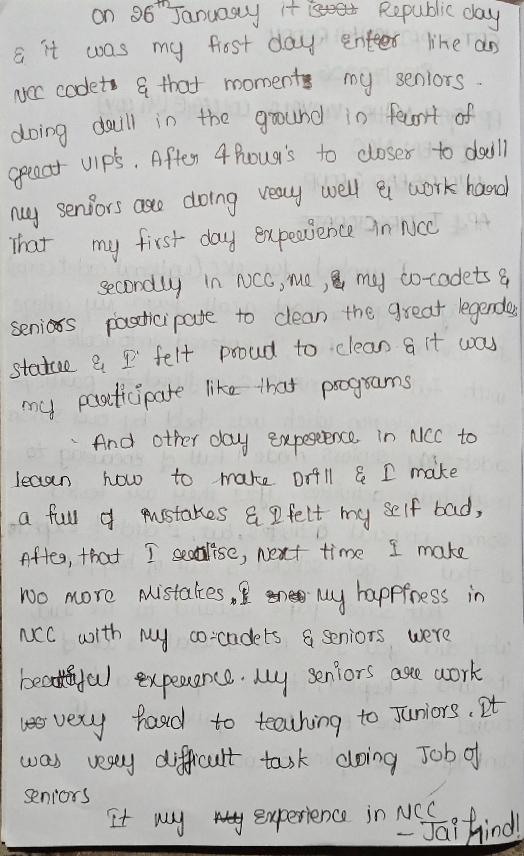 On 26th January it Republic day
& it was my first day enter like an
NCC cadets & that moments my seniors.
doing drill in the ground in fearnt of
great VIP's. After 4 hour's to closer to drill
my seniors are doing very well & work hard
That my first day experience in NCC
Secondly in NCC, me, & my co-cadets &
seniors participate to clean the great legends
statue & I felt proud to clean & it was
my participate like that programs
And other day experence in NCC to
learn how to make Drill & I make
a full of mistakes & I felt my self bad,
After, that I realise, next time I make
No more mistakes, my happiness in
NCC with my co-cadets & seniors were
beautiful experience. My seniors are work
very hard to teaching to Juniors. It
was very difficult task doing Job of
seniors
It my experience in NCC
- Jai hind!